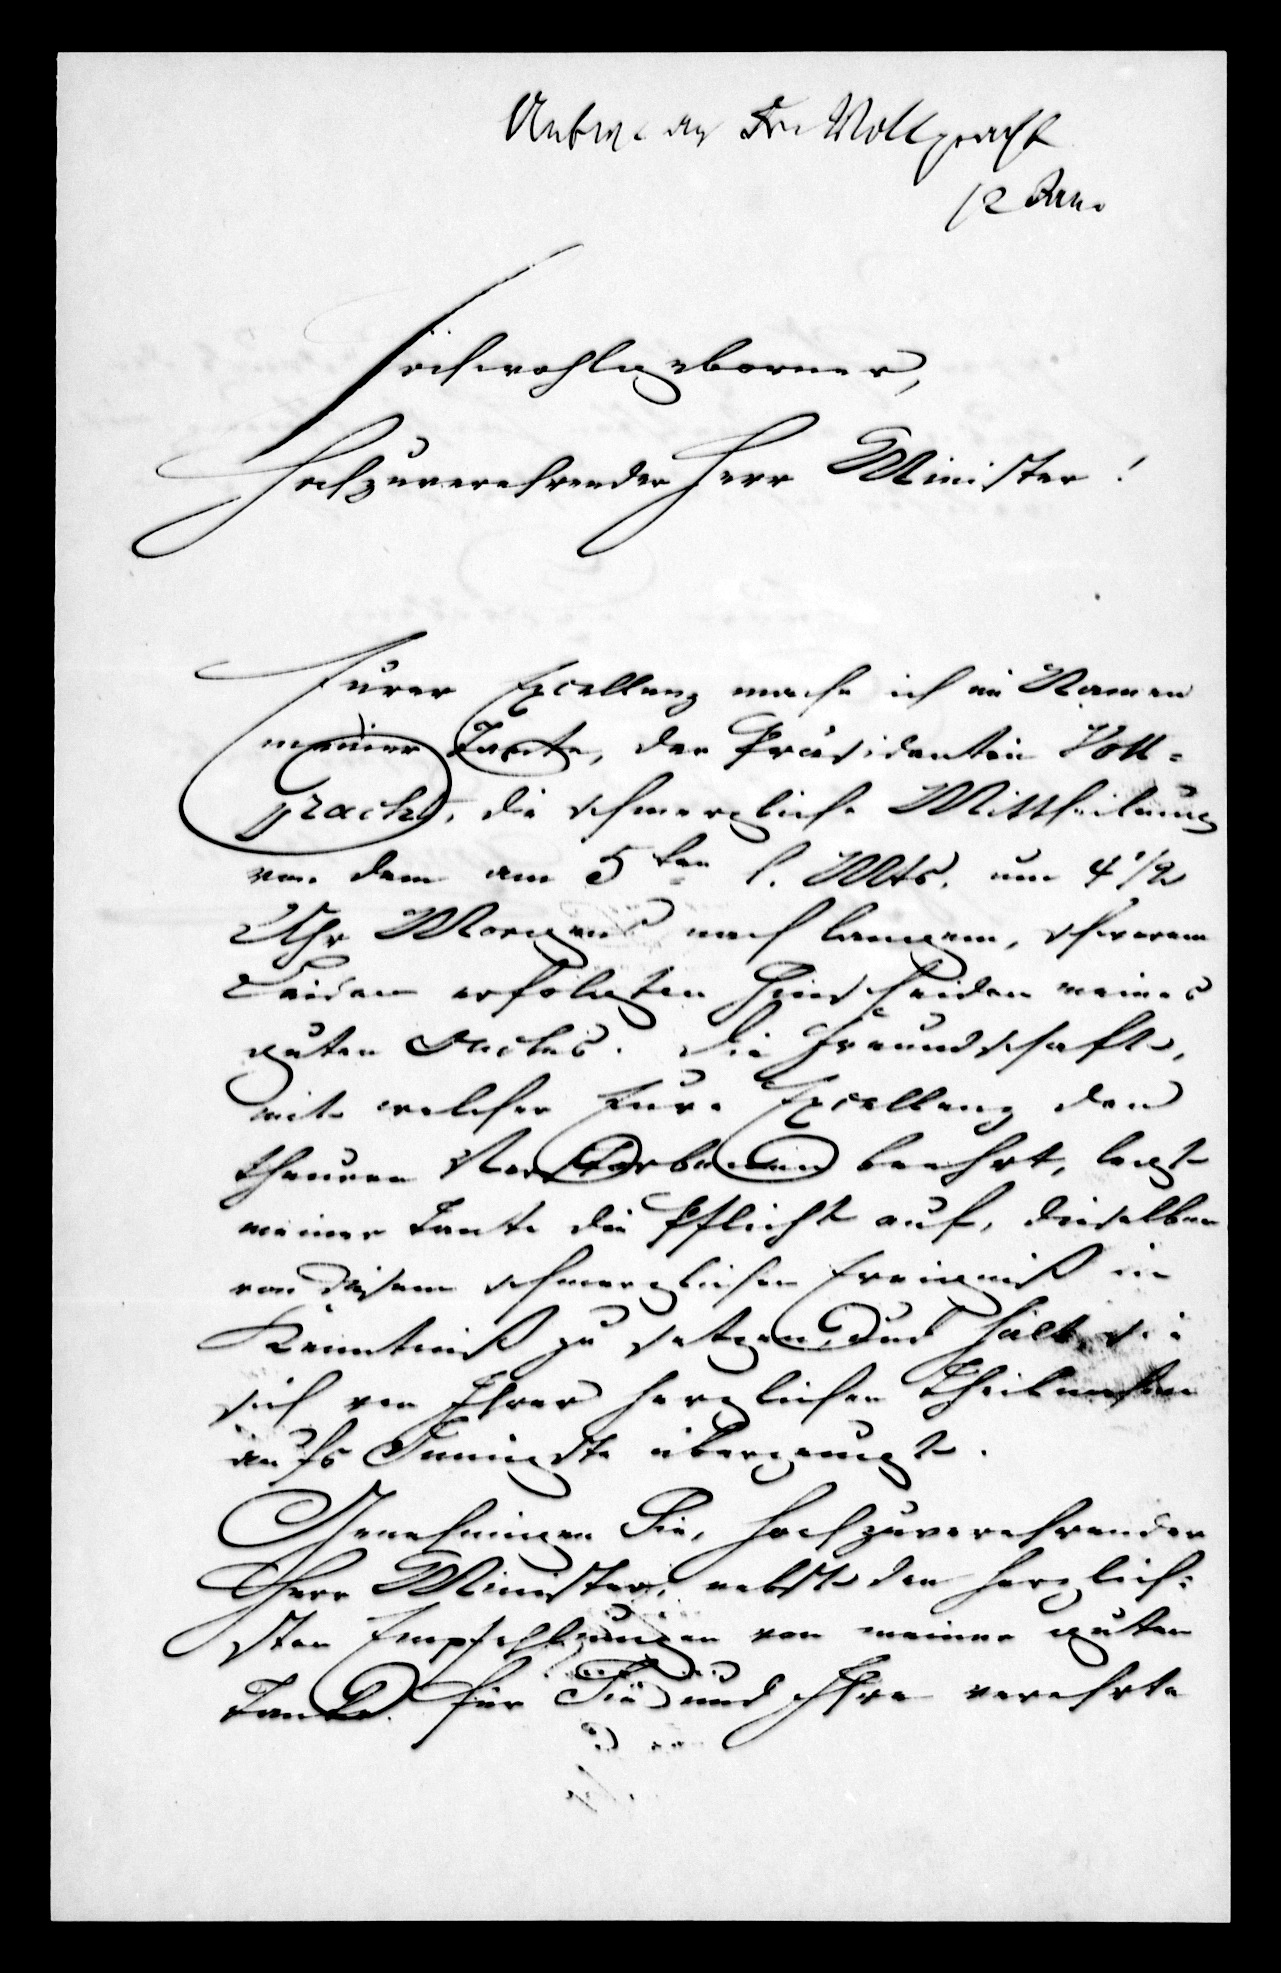 an Fr. Vollpracht
12 Jan.
Hochwohlgeborner,
Hochzuverehrender Herr Minister!
Eurer Excellenz mache ich im Namen
meiner Tante, der Präsidentin Voll-
pracht, die schmerzliche Mittheilung
von dem am 5ten l. Mts. um 4 1/2
Uhr Morgens nach langem, schwerem
Leiden erfolgten Hinscheiden meines
guten Onkels. Die Freundschaft,
mit welcher Eure Excellenz den
theuren Verstorbenen beehrt, legt
meiner Tante die Pflicht auf, dieselben
von diesem schmerzlichen Ereigniß in
Kenntniß zu setzen, und hält sie
sich von Ihrer herzlichen Theilnahme
aufs Innigste überzeugt.
Genehmigen Sie, hochzuverehrender
Herr Minister, nebst den herzlich-
sten Empfehlungen von meiner guten
Tante für Sie und Ihre verehrte